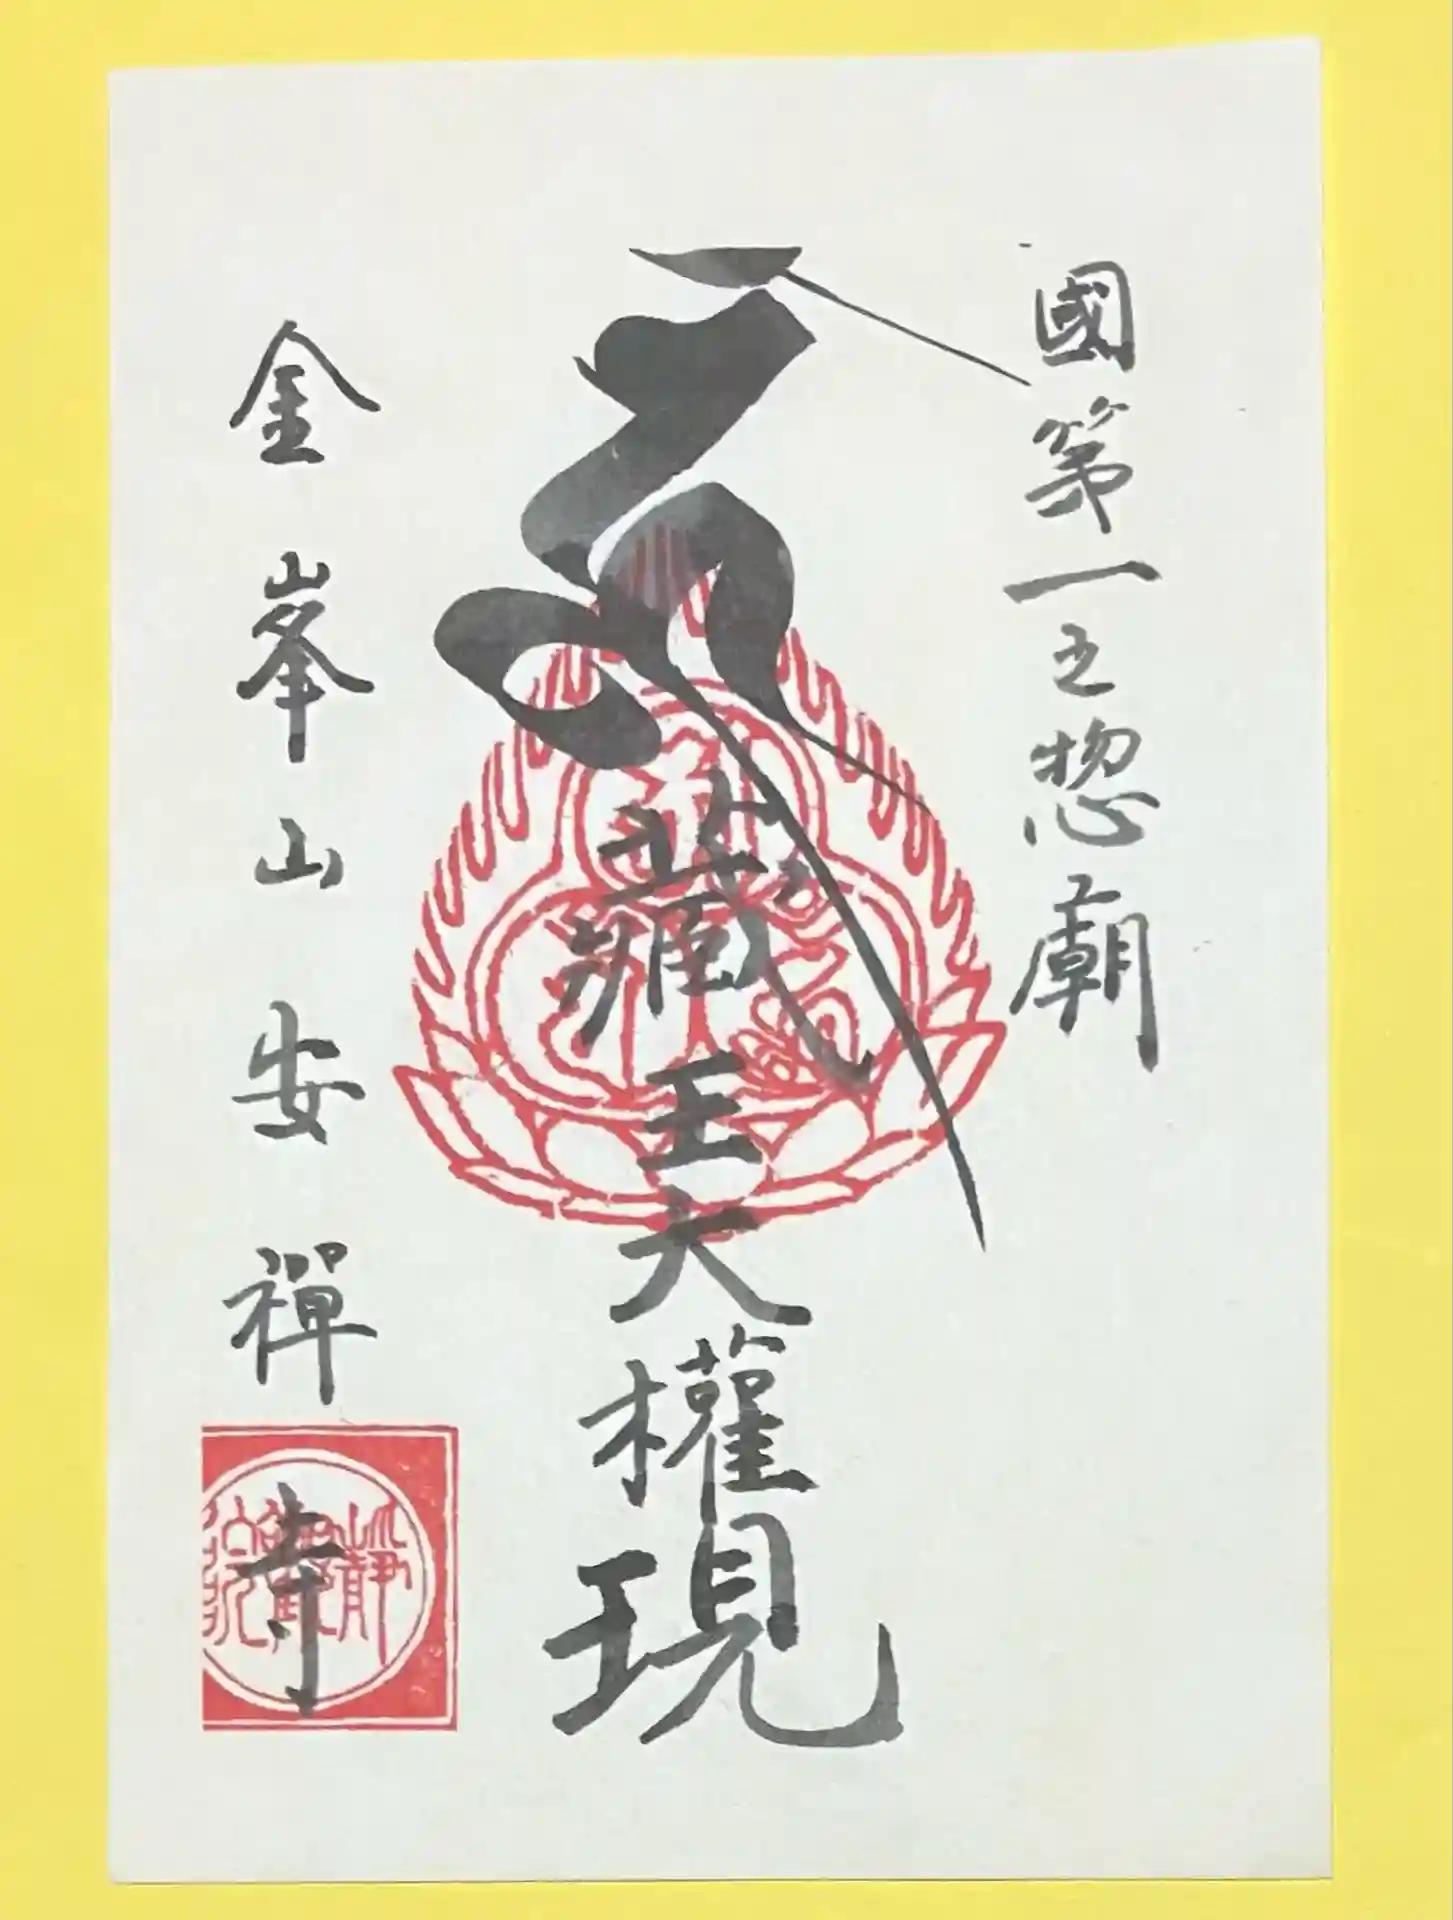 國第一之惣廟
藏王大權現
金峯山安禪寺
靜觀院